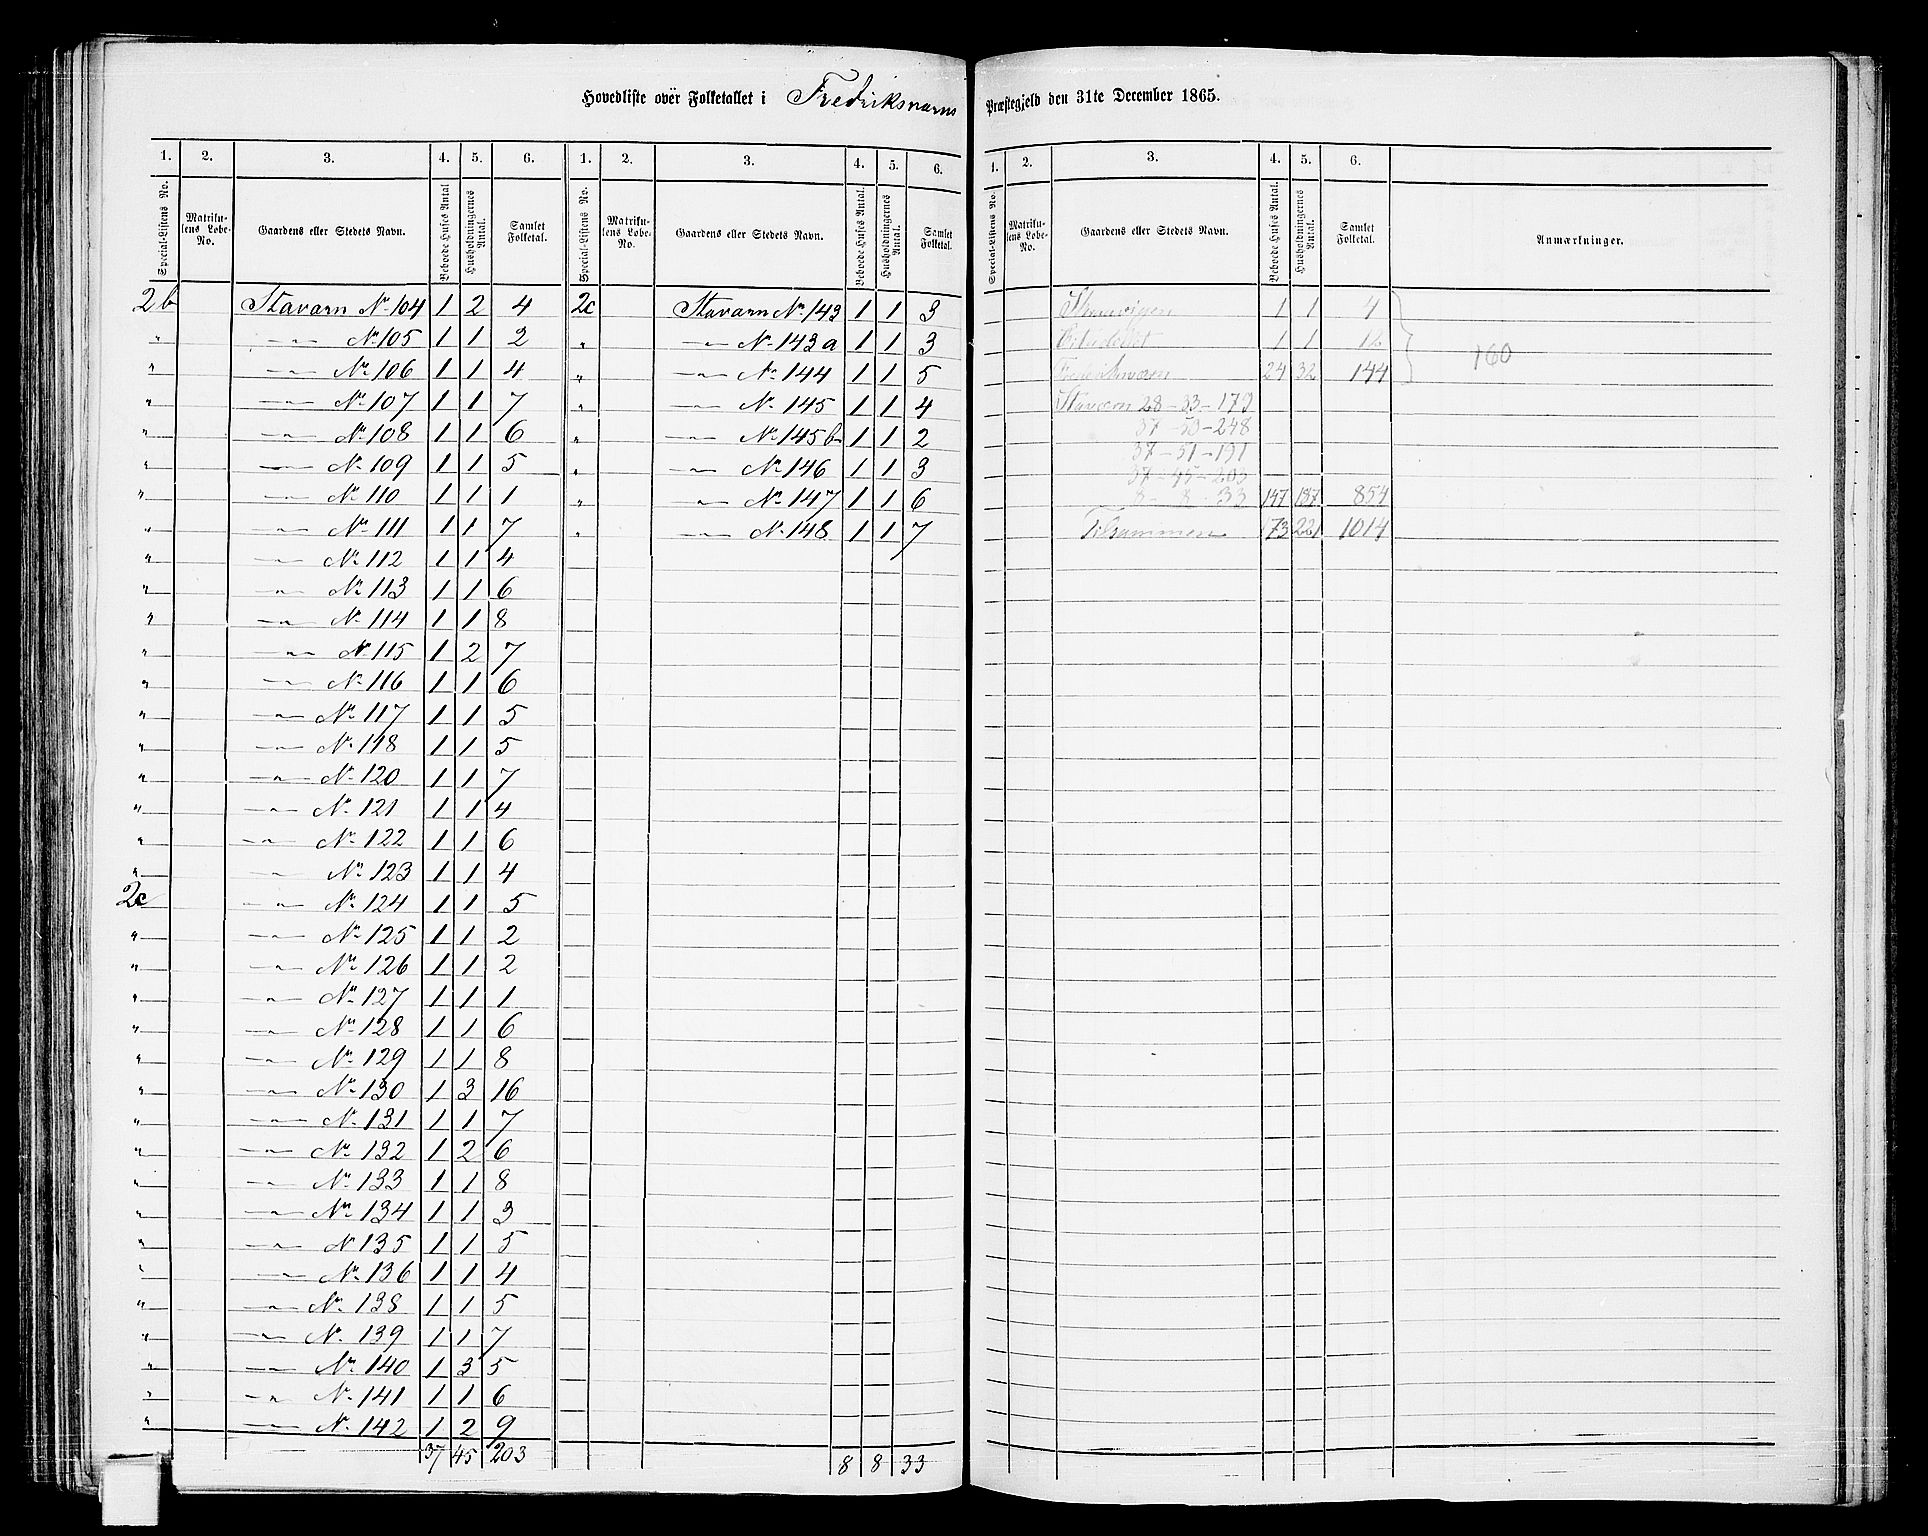 Hovedliste over Folketallet i Fredriksværns Præstegjeld den 31te December 1865.
1. 2. 3. 4. 5. 6. 1. 2. 3. 4. 5. 6.
Special-Listens No. Matrikulens Løbe-No. Gaardens eller Stedets Navn. Beboede Huses Antal. Husholdningernes Antal. Samlet Folketal. Special-Listens No. Matrikulens Løbe-No. Gaardens eller Stedets Navn. Beboede Huses Antal. Husholdningernes Antal. Samlet Folketal.
2b Staværn No 104 1 2 4
" —"— No 105 1 1 2
" —"— No 106 1 1 4
" —"— No 107 1 1 7
" —"— No 108 1 1 6
" —"— No 109 1 1 5
" —"— No 110 1 1 1
" —"— No 111 1 1 7
" —"— No 112 1 1 4
" —"— No 113 1 1 6
" —"— No 114 1 1 8
" —"— No 115 1 2 7
" —"— No 116 1 1 6
" —"— No 117 1 1 5
" —"— No 118 1 1 5
" —"— No 120 1 1 7
" —"— No 121 1 1 4
" —"— No 122 1 1 6
" —"— No 123 1 1 4
2c —"— No 124 1 1 5
" —"— No 125 1 1 2
" —"— No 126 1 1 2
" —"— No 127 1 1 1
" —"— No 128 1 1 6
" —"— No 129 1 1 8
" —"— No 130 1 3 16
" —"— No 131 1 1 7
" —"— No 132 1 2 6
" —"— No 133 1 1 8
" —"— No 134 1 1 3
" —"— No 135 1 1 5
" —"— No 136 1 1 4
" —"— No 138 1 1 5
" —"— No 139 1 1 7
" —"— No 140 1 3 5
" —"— No 141 1 1 6
" —"— No 142 1 2 9
37 45 203
2c Staværn No 143 1 1 3
" —"— No 143a 1 1 3
" —"— No 144 1 1 5
" —"— No 145 1 1 4
" —"— No 145b 1 1 2
" —"— No 146 1 1 3
" —"— No 147 1 1 6
" —"— No 148 1 1 7
8 8 33
1. 2. 3. 4. 5. 6.
Special-Listens No. Matrikulens Løbe-No. Gaardens eller Stedets Navn. Beboede Huses Antal. Husholdningernes Antal. Samlet Folketal. Anmærkninger.
1 1 4
1 1 12
Frederiksværn 24 32 144
160
Staværn 28 - 33 - 179
37 - 50 - 248
37 - 51 - 191
37 - 45 - 203
8 - 8 - 33 147 187 854
Tilsammen 173 221 1014